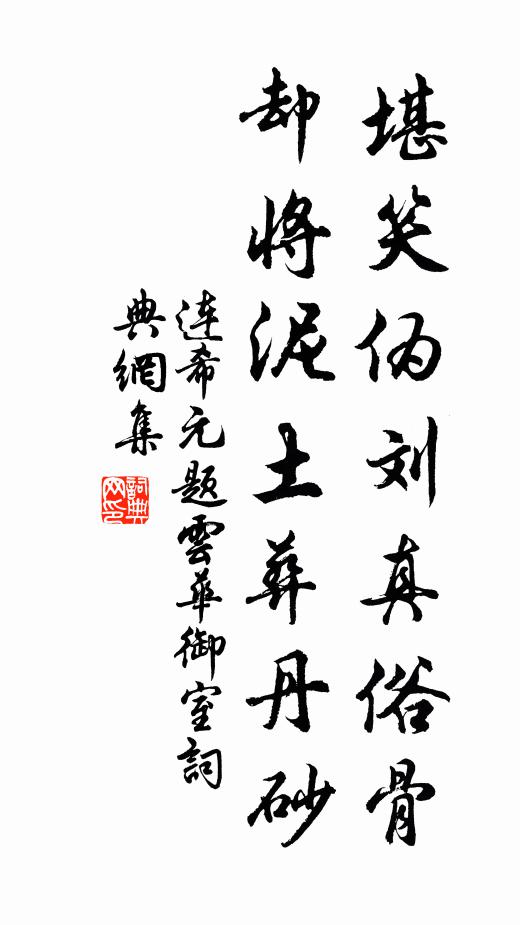 堪笑伪刘真俗骨
却将泥土葬丹砂
连希元题雲华御室词
典網集
詞典网印